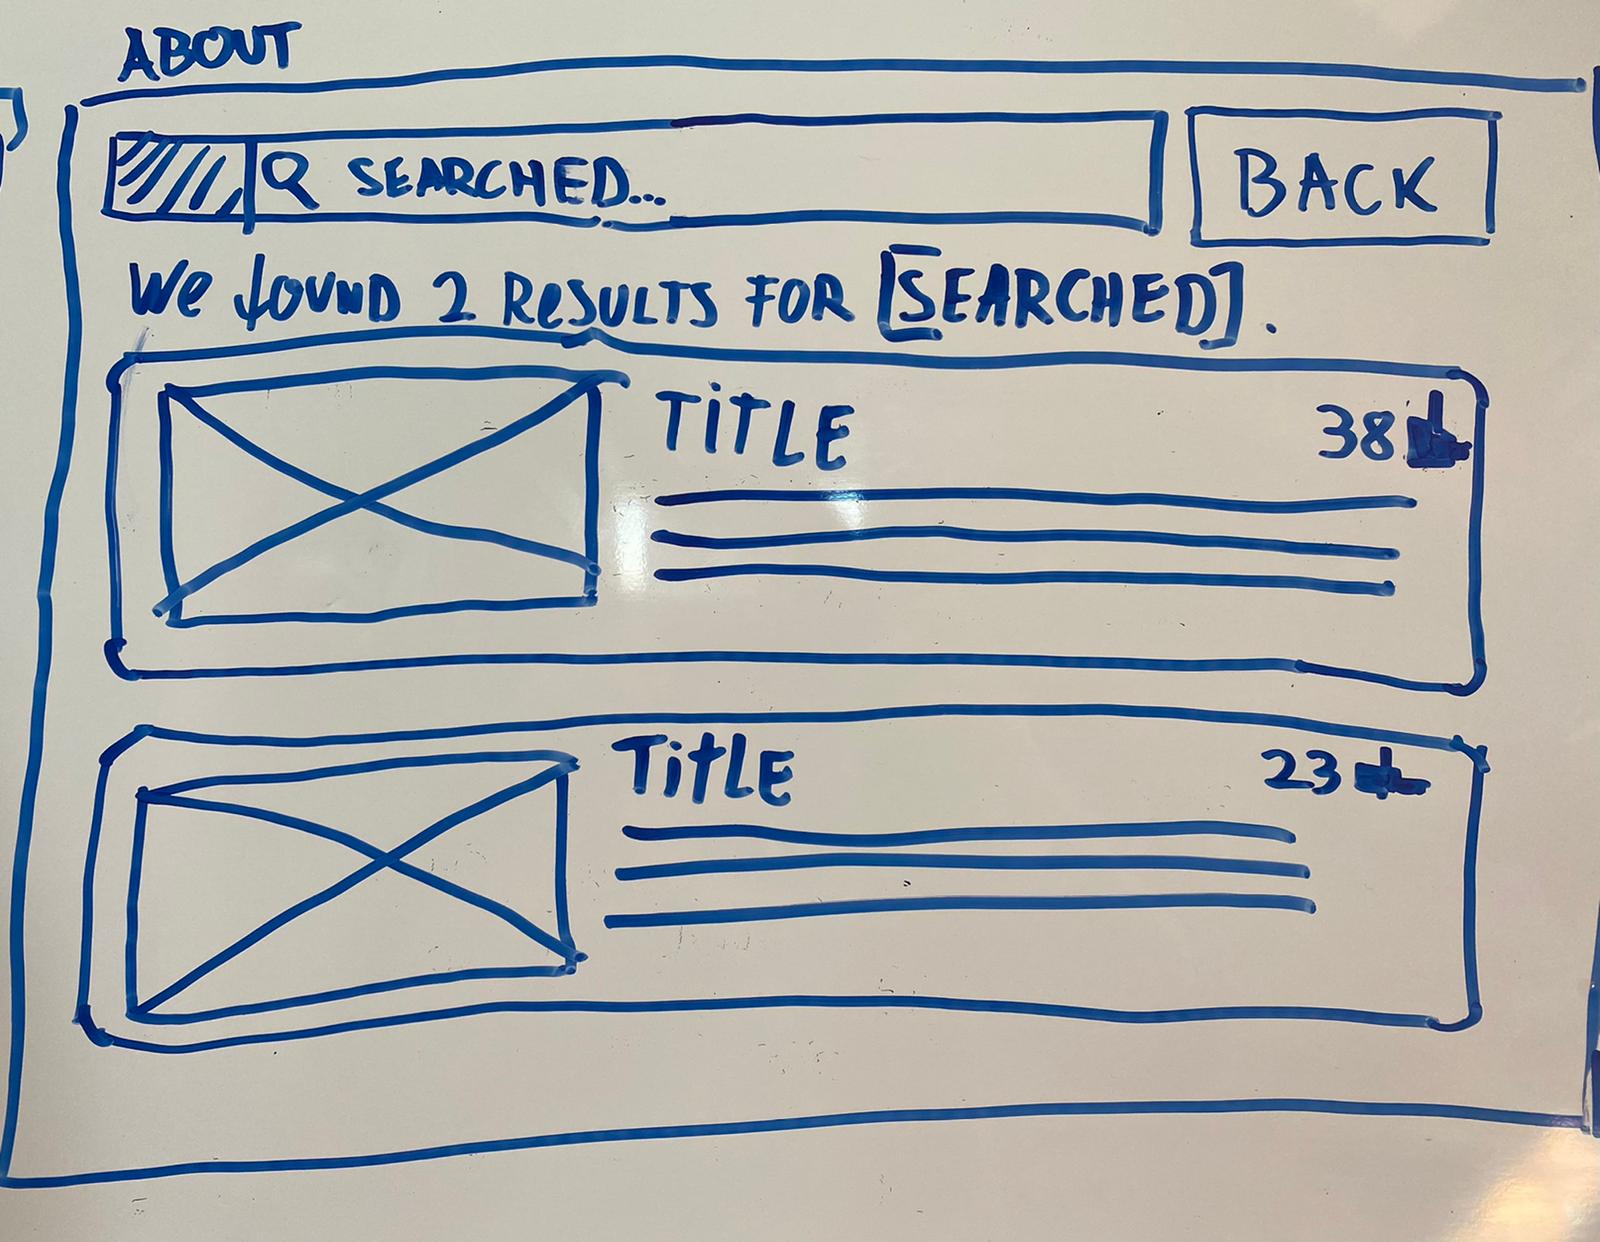 ABOUT
SEARCHED...
BACK
We foUND 2 ReSULTS FOR [SEARCHED].
TiTLE
38
TitLE
23